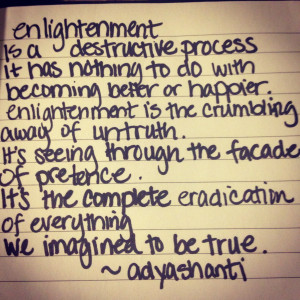 enlightenment
Is a destructive process
it has nothing to do with
becoming better or happier.
enlightenment is the crumbling
away of untruth.
It's seeing through the facade
of pretence.
It's the complete eradication
of everything
we imagined to be true.
~ adyashanti